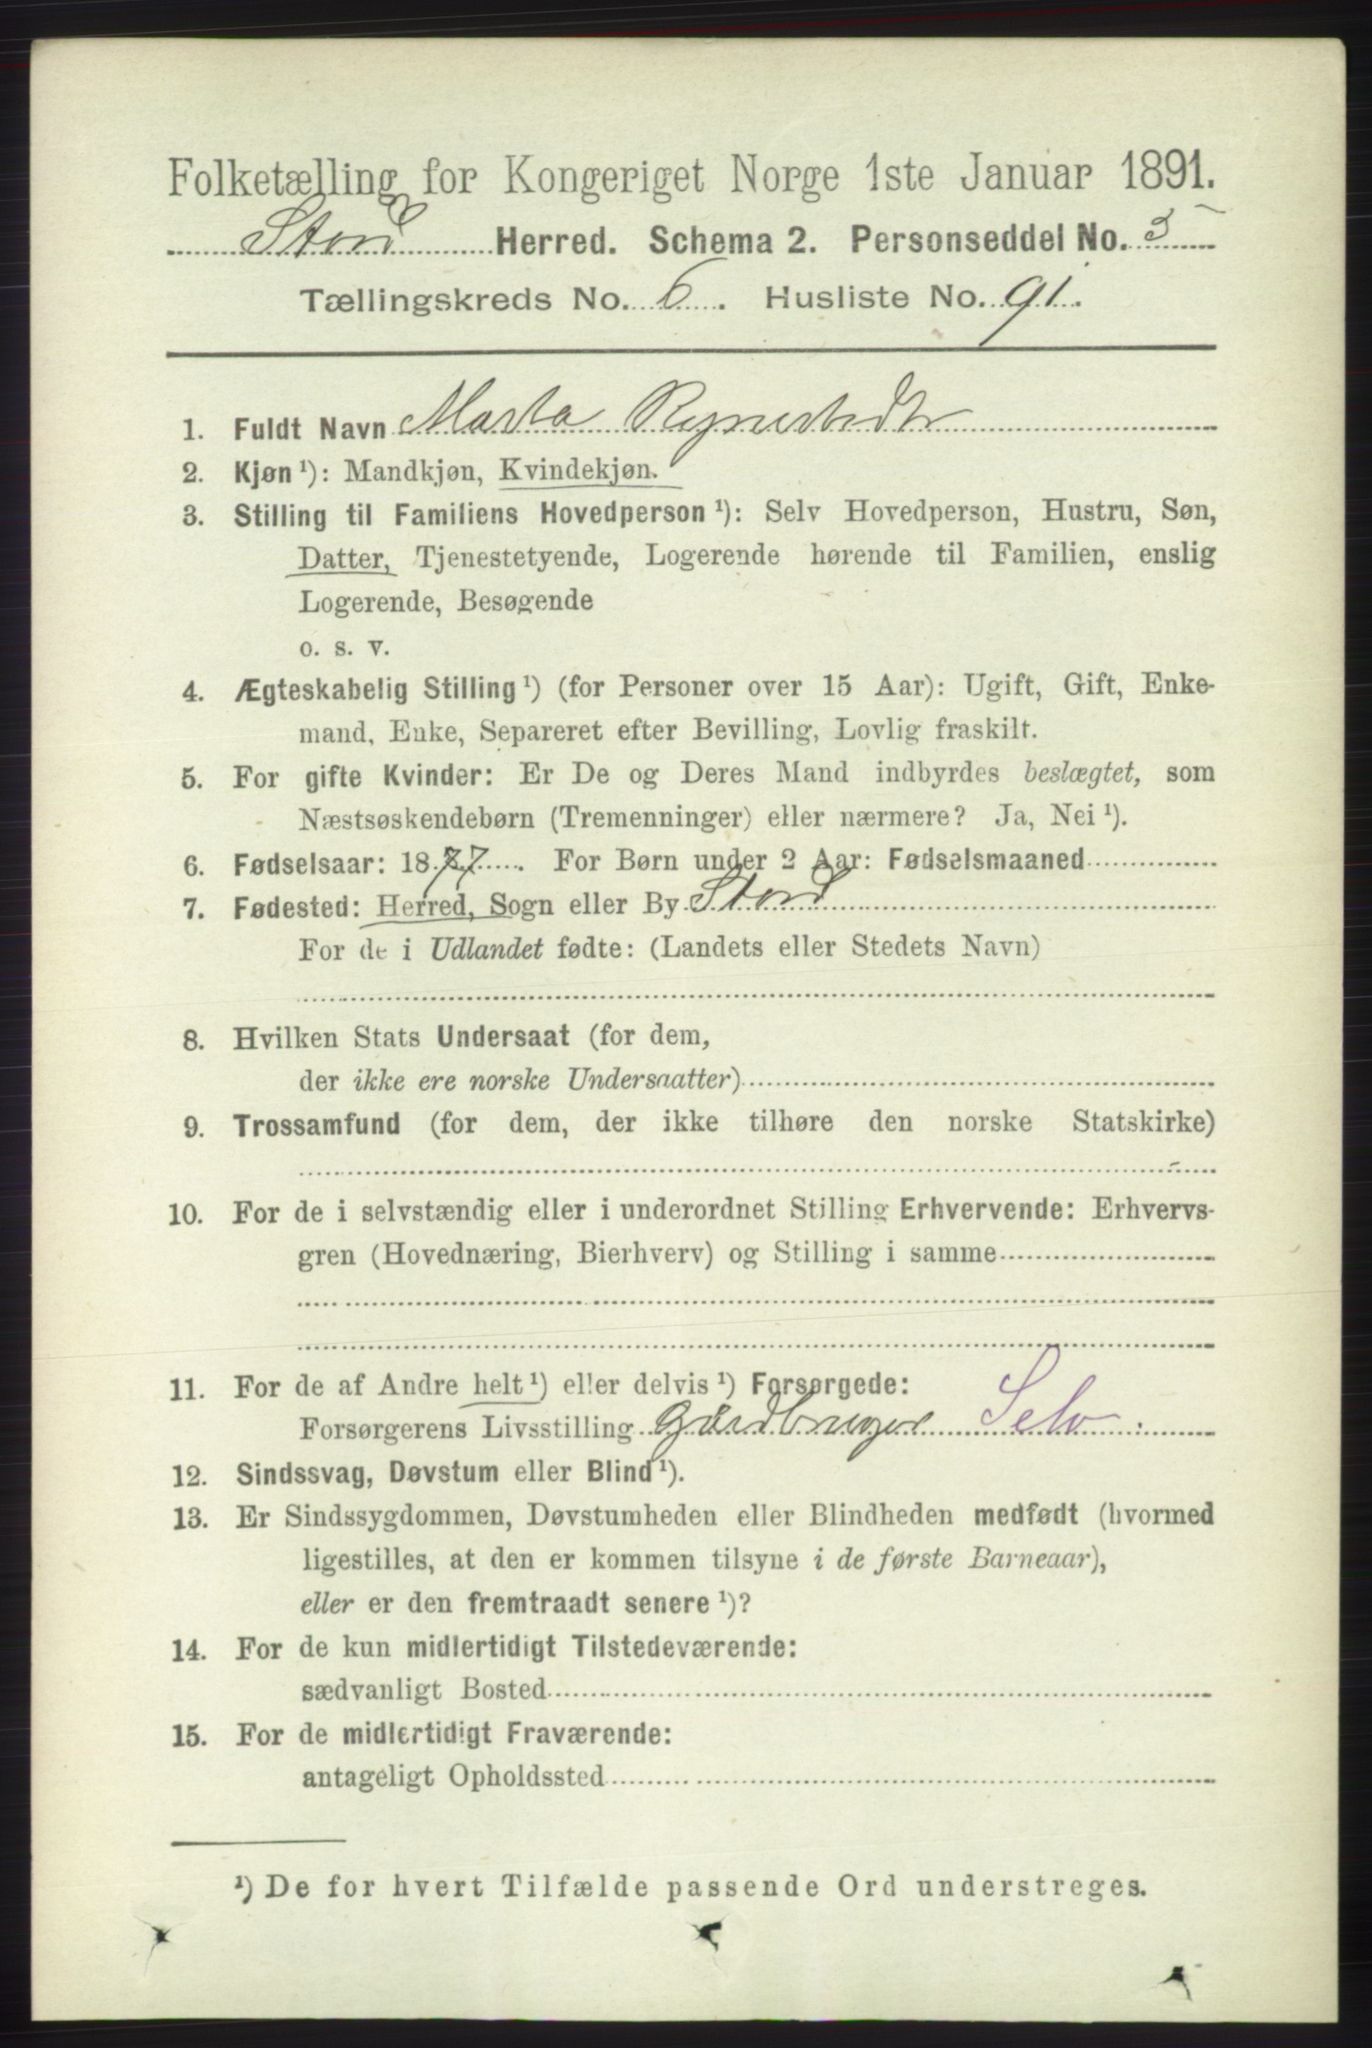 Folketælling for Kongeriget Norge 1ste Januar 1891.
Stord Herred. Schema 2. Personseddel No. 5
Tællingskreds No. 6. Husliste No. 91.
1. Fuldt Navn Marta
2. Kjøn ¹): Mandkjøn, Kvindekjøn.
3. Stilling til Familiens Hovedperson ¹): Selv Hovedperson, Hustru, Søn,
Datter, Tjenestetyende, Logerende hørende til Familien, enslig
Logerende, Besøgende
o. s. v.
4. Ægteskabelig Stilling ¹) (for Personer over 15 Aar): Ugift, Gift, Enke-
mand, Enke, Separeret efter Bevilling, Lovlig fraskilt.
5. For gifte Kvinder: Er De og Deres Mand indbyrdes beslægtet, som
Næstsøskendebørn (Tremenninger) eller nærmere? Ja, Nei ¹).
6. Fødselsaar: 1877. For Børn under 2 Aar: Fødselsmaaned
7. Fødested: Herred, Sogn eller By Stord
For de i Udlandet fødte: (Landets eller Stedets Navn)
8. Hvilken Stats Undersaat (for dem,
der ikke ere norske Undersaatter)
9. Trossamfund (for dem, der ikke tilhøre den norske Statskirke)
10. For de i selvstændig eller i underordnet Stilling Erhvervende: Erhvervs-
gren (Hovednæring, Bierhverv) og Stilling i samme
11. For de af Andre helt ¹) eller delvis ¹) Forsørgede:
Forsørgerens Livsstilling Gårdbruger Selv
12. Sindssvag, Døvstum eller Blind ¹).
13. Er Sindssygdommen, Døvstumheden eller Blindheden medfødt (hvormed
ligestilles, at den er kommen tilsyne i de første Barneaar),
eller er den fremtraadt senere ¹)?
14. For de kun midlertidigt Tilstedeværende:
sædvanligt Bosted
15. For de midlertidigt Fraværende:
antageligt Opholdssted
¹) De for hvert Tilfælde passende Ord understreges.